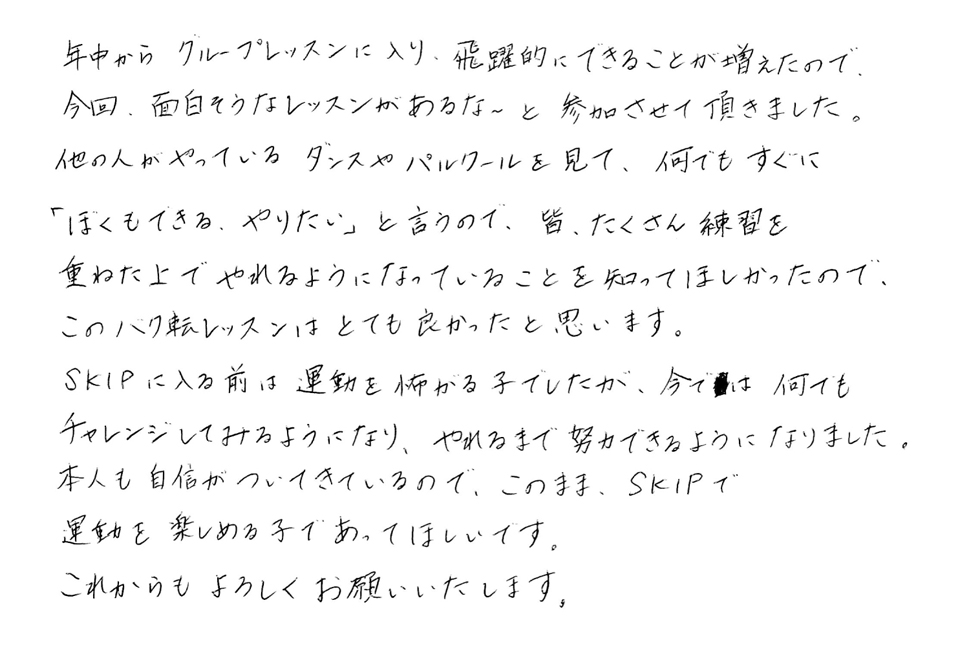 年中から グループレッスンに入り、飛躍的にできることが増えたので、
今回、面白そうなレッスンがあるな〜と 参加させて頂きました。
他の人がやっている ダンスや パルクールを見て、何でも すぐに
「ぼくもできる、やりたい」と言うので、皆、たくさん練習を
重ねた上で やれるようになっていることを知ってほしかったので、
このバク転レッスンは とても良かったと思います。
SKIPに入る前は 運動を怖がる子でしたが、今では 何でも
チャレンジしてみるようになり、やれるまで努力できるようになりました。
本人も自信がついてきているので、このまま、SKIPで
運動を楽しめる子であってほしいです。
これからも よろしく お願いいたします。